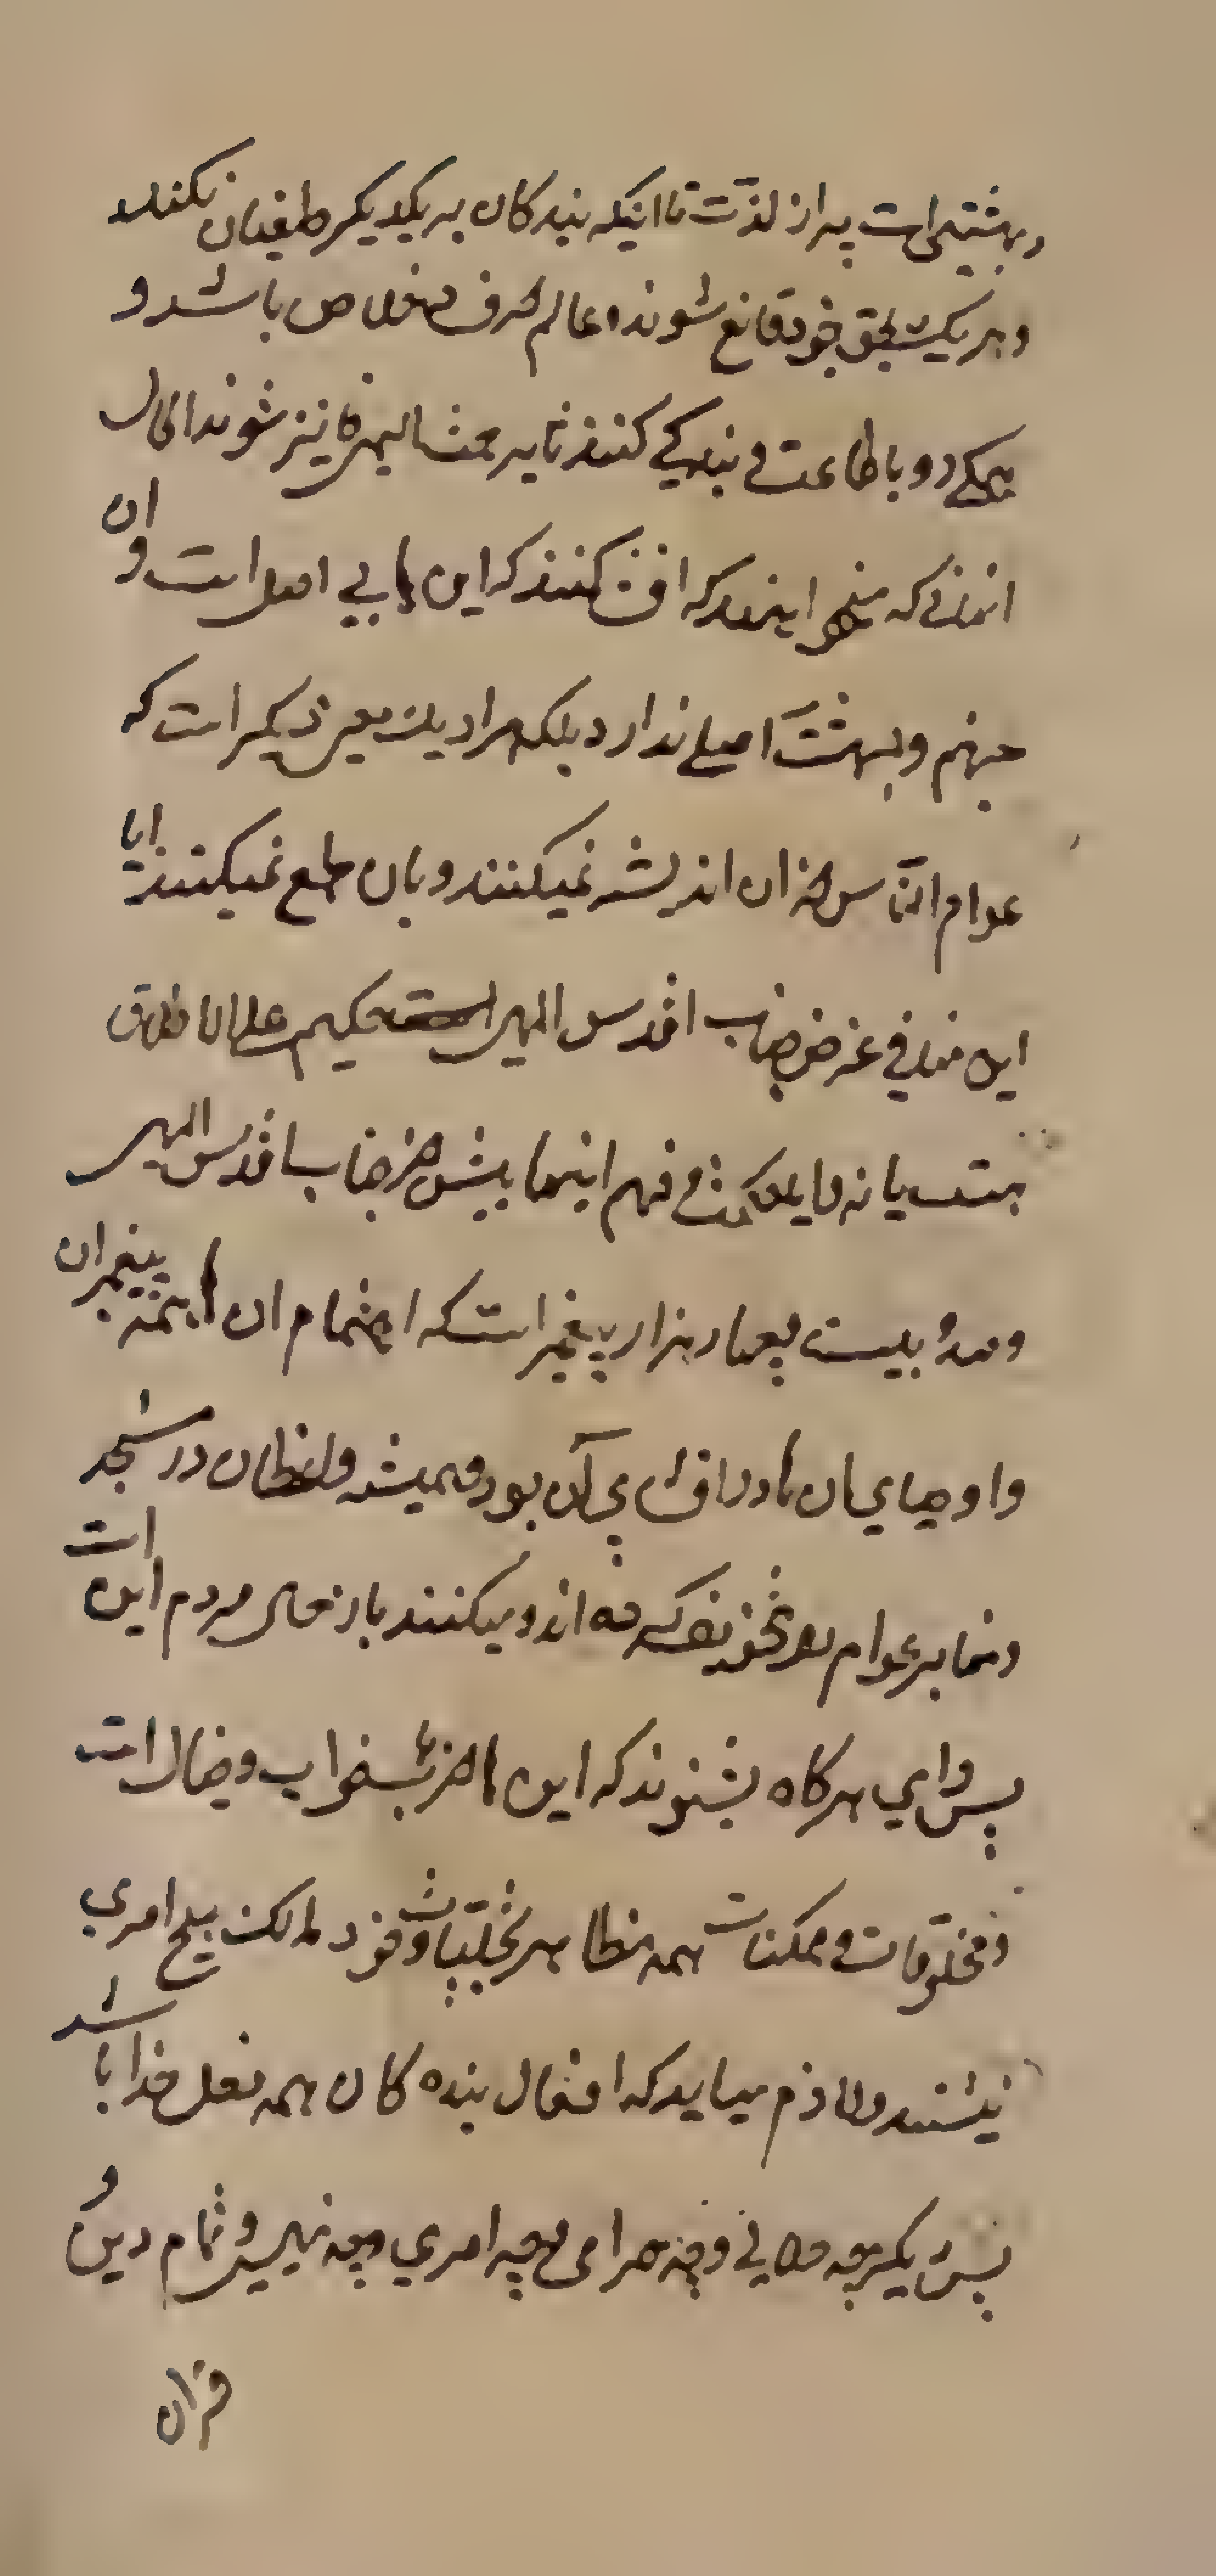 و بهشتی است پر از لذت تا اینکه بندکان بر یکدیکر طغیان نکنند
و هر یک بحق خود قانع شوند و عالم صرف خلاص باشد و
همکی رو باطاعت و بندکی کنند تا بر فایز شوند الحال
انهائی که میخواهند که افشا کنند که این ها بی اصل است و ان
جهنم و بهشت اصلی ندارد بلکه مراد یک معنی دیکر است که
عوام الناس از ان اندیشه نمیکنند و بان طمع نمیکنند ایا
این منافی غرض جناب اقدس الهی است حکیم علی الاطلاق
هست یا نه و ایا حکمت و فهم اینها بیش از جناب اقدس الهی
و صد و بیست و چهار هزار پیغمبر است که اهتمام ان همه پیغمبران
و اوصیای ان ها در افشای آن بود و همیشه واعظان در مسجد
و منابر عوام را تخویف کرده اند و میکنند باز حال مردم این است
پس وای هرکاه بشنوند که این ها خواب و خیال است
و مخلوقات و ممکنات همه مظاهر تجلیات و خود مالک هیچ امری
نیستند و لازم میاید که افعال بنده کان همه فعل خدا باشد
پس دیکر چه حلالی و چه حرامی و چه امری و چه نهیی و تمام دین و
قران